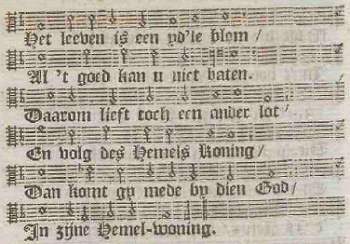 Het leeven is een yd'le blom /
Al 't goed kan u niet baten.
Daarom lieft toch een ander lot /
En volg des Hemels Koning /
Dan komt gy mede by dien God /
In zijne Hemel-woning.